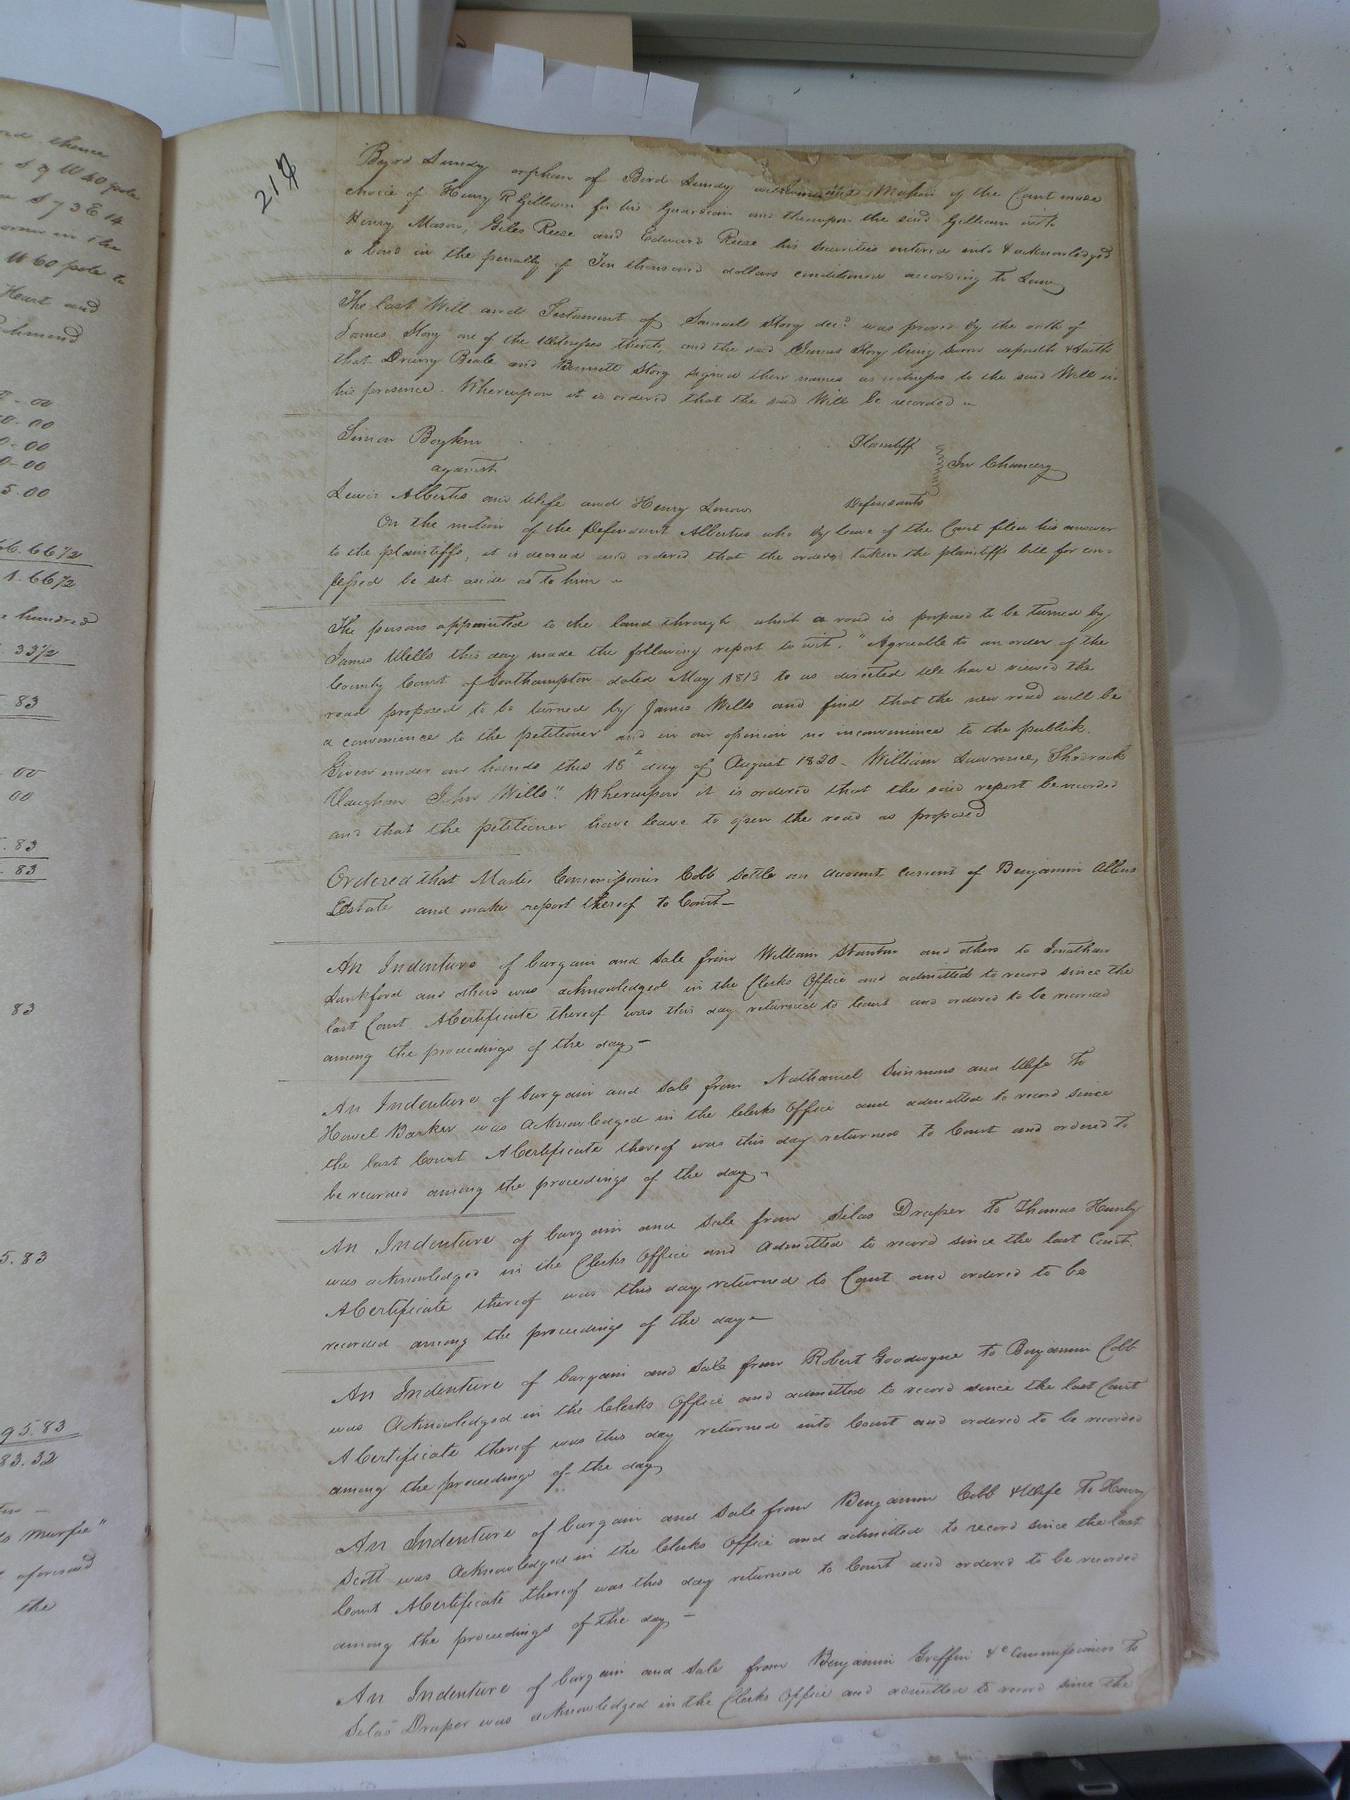 ord thence
S 9 W 40 pole
S 73 E 14
in the
W 60 pole to
Heart and
Richmond
00
0.00
0.00
0-00
5.00
66.66 1/2
1.66 1/2
hundred
33 1/2
83
00
00
.83
.83
83
5.83
95.83
83.32
Murfee"
aforesaid
the
214
Byrd Lundy orphan of Bird Lundy with the Motion of the Court made
choice of Henry R Gilliam for his Guardian and thereupon the said Gilliam with
Henry Mason, Giles Reese and Edward Reese his Securities entered into & acknowledged
a bond in the penalty of Ten thousand dollars conditioned according to Law
The last Will and Testament of Samuel Story decd. was proved by the oath of
James Story one of the Witnesses thereto, and the said James Story being sworn deposeth & saith
that Drewry Beale and Bennett Story signed their names as witnesses to the said Will in
his presence. Whereupon it is ordered that the said Will be recorded
Simon Boykin Plaintiff
against In Chancery
Lewis Albertis and Wife and Henry Defendants
On the motion of the Defendant Albertus who by leave of the Court filed his answer
to the plaintiffs, it is decreed and ordered that the orders taken the plaintiffs bill for con-
fessed be set aside as to him
The persons appointed to the land through which a road is proposed to be turned by
James Wells this day made the following report to wit. "Agreeable to an order of the
County Court of Southampton dated May 1813 to us directed We have viewed the
road proposed to be turned by James Wells and find that the new road will be
a convenience to the petitioner and in our opinion no inconvenience to the publick.
Given under our hands this 18th day of August 1820 - William Lawrence, Shadrack
Vaughan John Wells". Whereupon it is ordered that the said report be recorded
and that the petitioner have leave to open the road as proposed
Ordered that Master Commissioner Cobb settle an account current of Benjamin Allens
Estate and make report thereof to Court -
An Indenture of bargain and sale from William Stanton and others to Jonathan
Lankford and others was acknowledged in the Clerks Office and admitted to record since the
last Court A Certificate thereof was this day returned to Court and ordered to be recorded
among the proceedings of the day -
An Indenture of bargain and sale from Nathaniel Simmons and Wife to
Howel Barker was acknowledged in the Clerks Office and admitted to record since
the last Court A Certificate thereof was this day returned to Court and ordered to
be recorded among the proceedings of the day -
An Indenture of bargain and sale from Silas Draper to Thomas Hunly
was acknowledged in the Clerks Office and admitted to record since the last Court.
A Certificate thereof was this day returned to Court and ordered to be
recorded among the proceedings of the day -
An Indenture of bargain and sale from Robert Goodwyne to Benjamin Cobb
was Acknowledged in the Clerks Office and admitted to record since the last Court
A Certificate thereof was this day returned into Court and ordered to be recorded
among the proceedings of the day
An Indenture of bargain and sale from Benjamin Cobb & Wife to Henry
Scott was Acknowledged in the Clerks Office and admitted to record since the last
Court A Certificate thereof was this day returned to Court and ordered to be recorded
among the proceedings of the day -
An Indenture of bargain and sale from Benjamin Griffin &c Commissioners to
Silas Draper was acknowledged in the Clerks Office and admitted to record since the